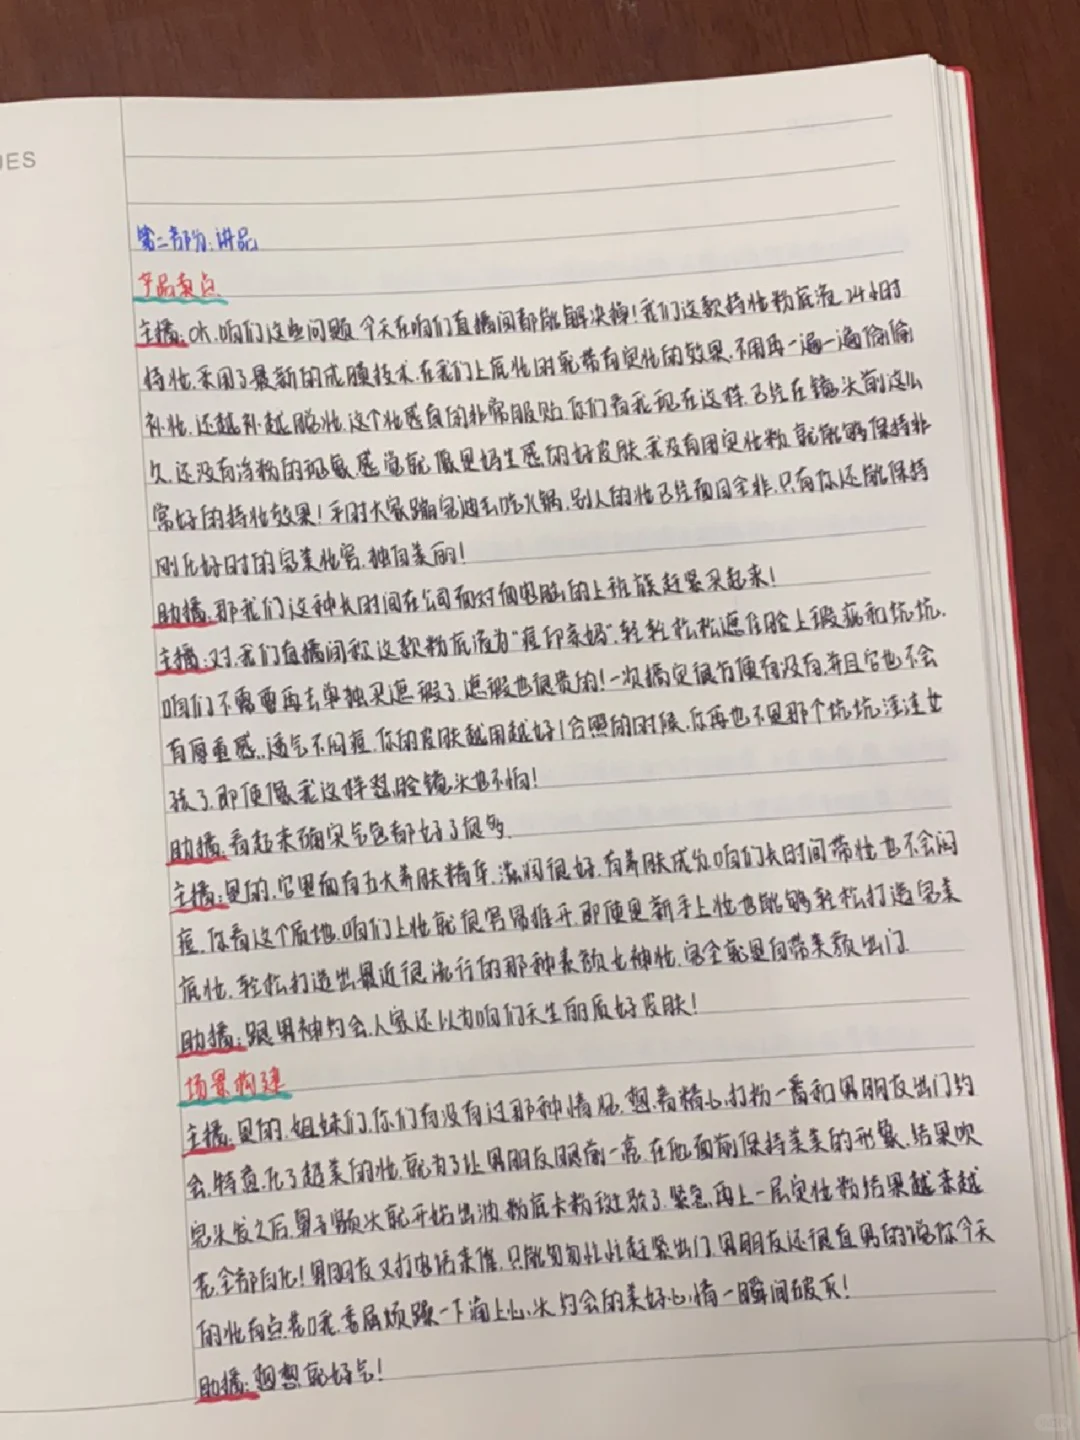 UES
第二部分:讲品
产品卖点
主播:OK,咱们这些问题,今天在咱们直播间都能解决掉!我们这款持妆粉底液,24小时
持妆,采用了最新的成膜技术,在我们上底妆时就带有定妆的效果,不用再一遍一遍偷偷
补妆,还越补越脱妆,这个妆感真的非常服贴,你们看我现在这样,已经在镜头前这么
久,还没有浮粉的现象,感觉就像是妈生感的好皮肤,我没有用定妆粉,就能够保持非
常好的持妆效果!平时大家蹦完迪去吃火锅,别人的妆已经面目全非,只有你还能保持
刚化好时的完美妆容,独自美丽!
助播:那我们这种长时间在公司面对面电脑的上班族赶紧买起来!
主播:对,我们直播间称这款粉底液为“痘印亲妈”,轻轻松松遮住脸上瑕疵和坑坑,
咱们不需要再去单独买遮瑕了,遮瑕也很贵的!一次搞定很方便有没有,并且它也不会
有厚重感,透气不闷痘,你的皮肤越用越好!合照的时候,你再也不是那个坑坑洼洼女
孩了,即便像我这样怼脸镜头也不怕!
助播:看起来确实气色都好了很多,
主播:是的,它里面有五大养肤精华,滋润很好,有养肤成分,咱们长时间带妆也不会闷
痘,你看这个质地,咱们上妆就很容易推开,即便是新手上妆也能够轻松打造完美
底妆,轻松打造出最近很流行的那种素颜女神妆,完全就是自带素颜出门
助播:跟男神约会,人家还以为咱们天生丽质好皮肤!
场景构建
主播:是的,姐妹们,你们有没有过那种情况,想着精心打扮一番和男朋友出门约
会,特意化了超美的妆,就为了让男朋友眼前一亮,在他面前保持美美的形象,结果吹
完头发之后,鼻子额头就开始出油,粉底卡粉斑驳了,紧急再上一层定妆粉结果越来越
花,全部白化!男朋友又打电话来催,只能匆匆忙忙赶紧出门,男朋友还很直男的说你今天
的妆有点花哦,委屈烦躁一下涌上心头,约会的美好心情一瞬间破灭!
助播:想想就好气!